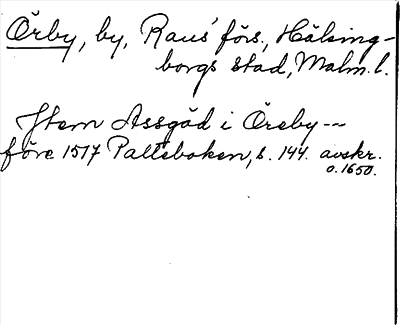 Örby, by, Raus' förs., Hälsing-
borgs stad, Malm. l.
Item Assgöd i Öreby --
före 1517 Palteboken, s. 144. avskr.
o. 1650.